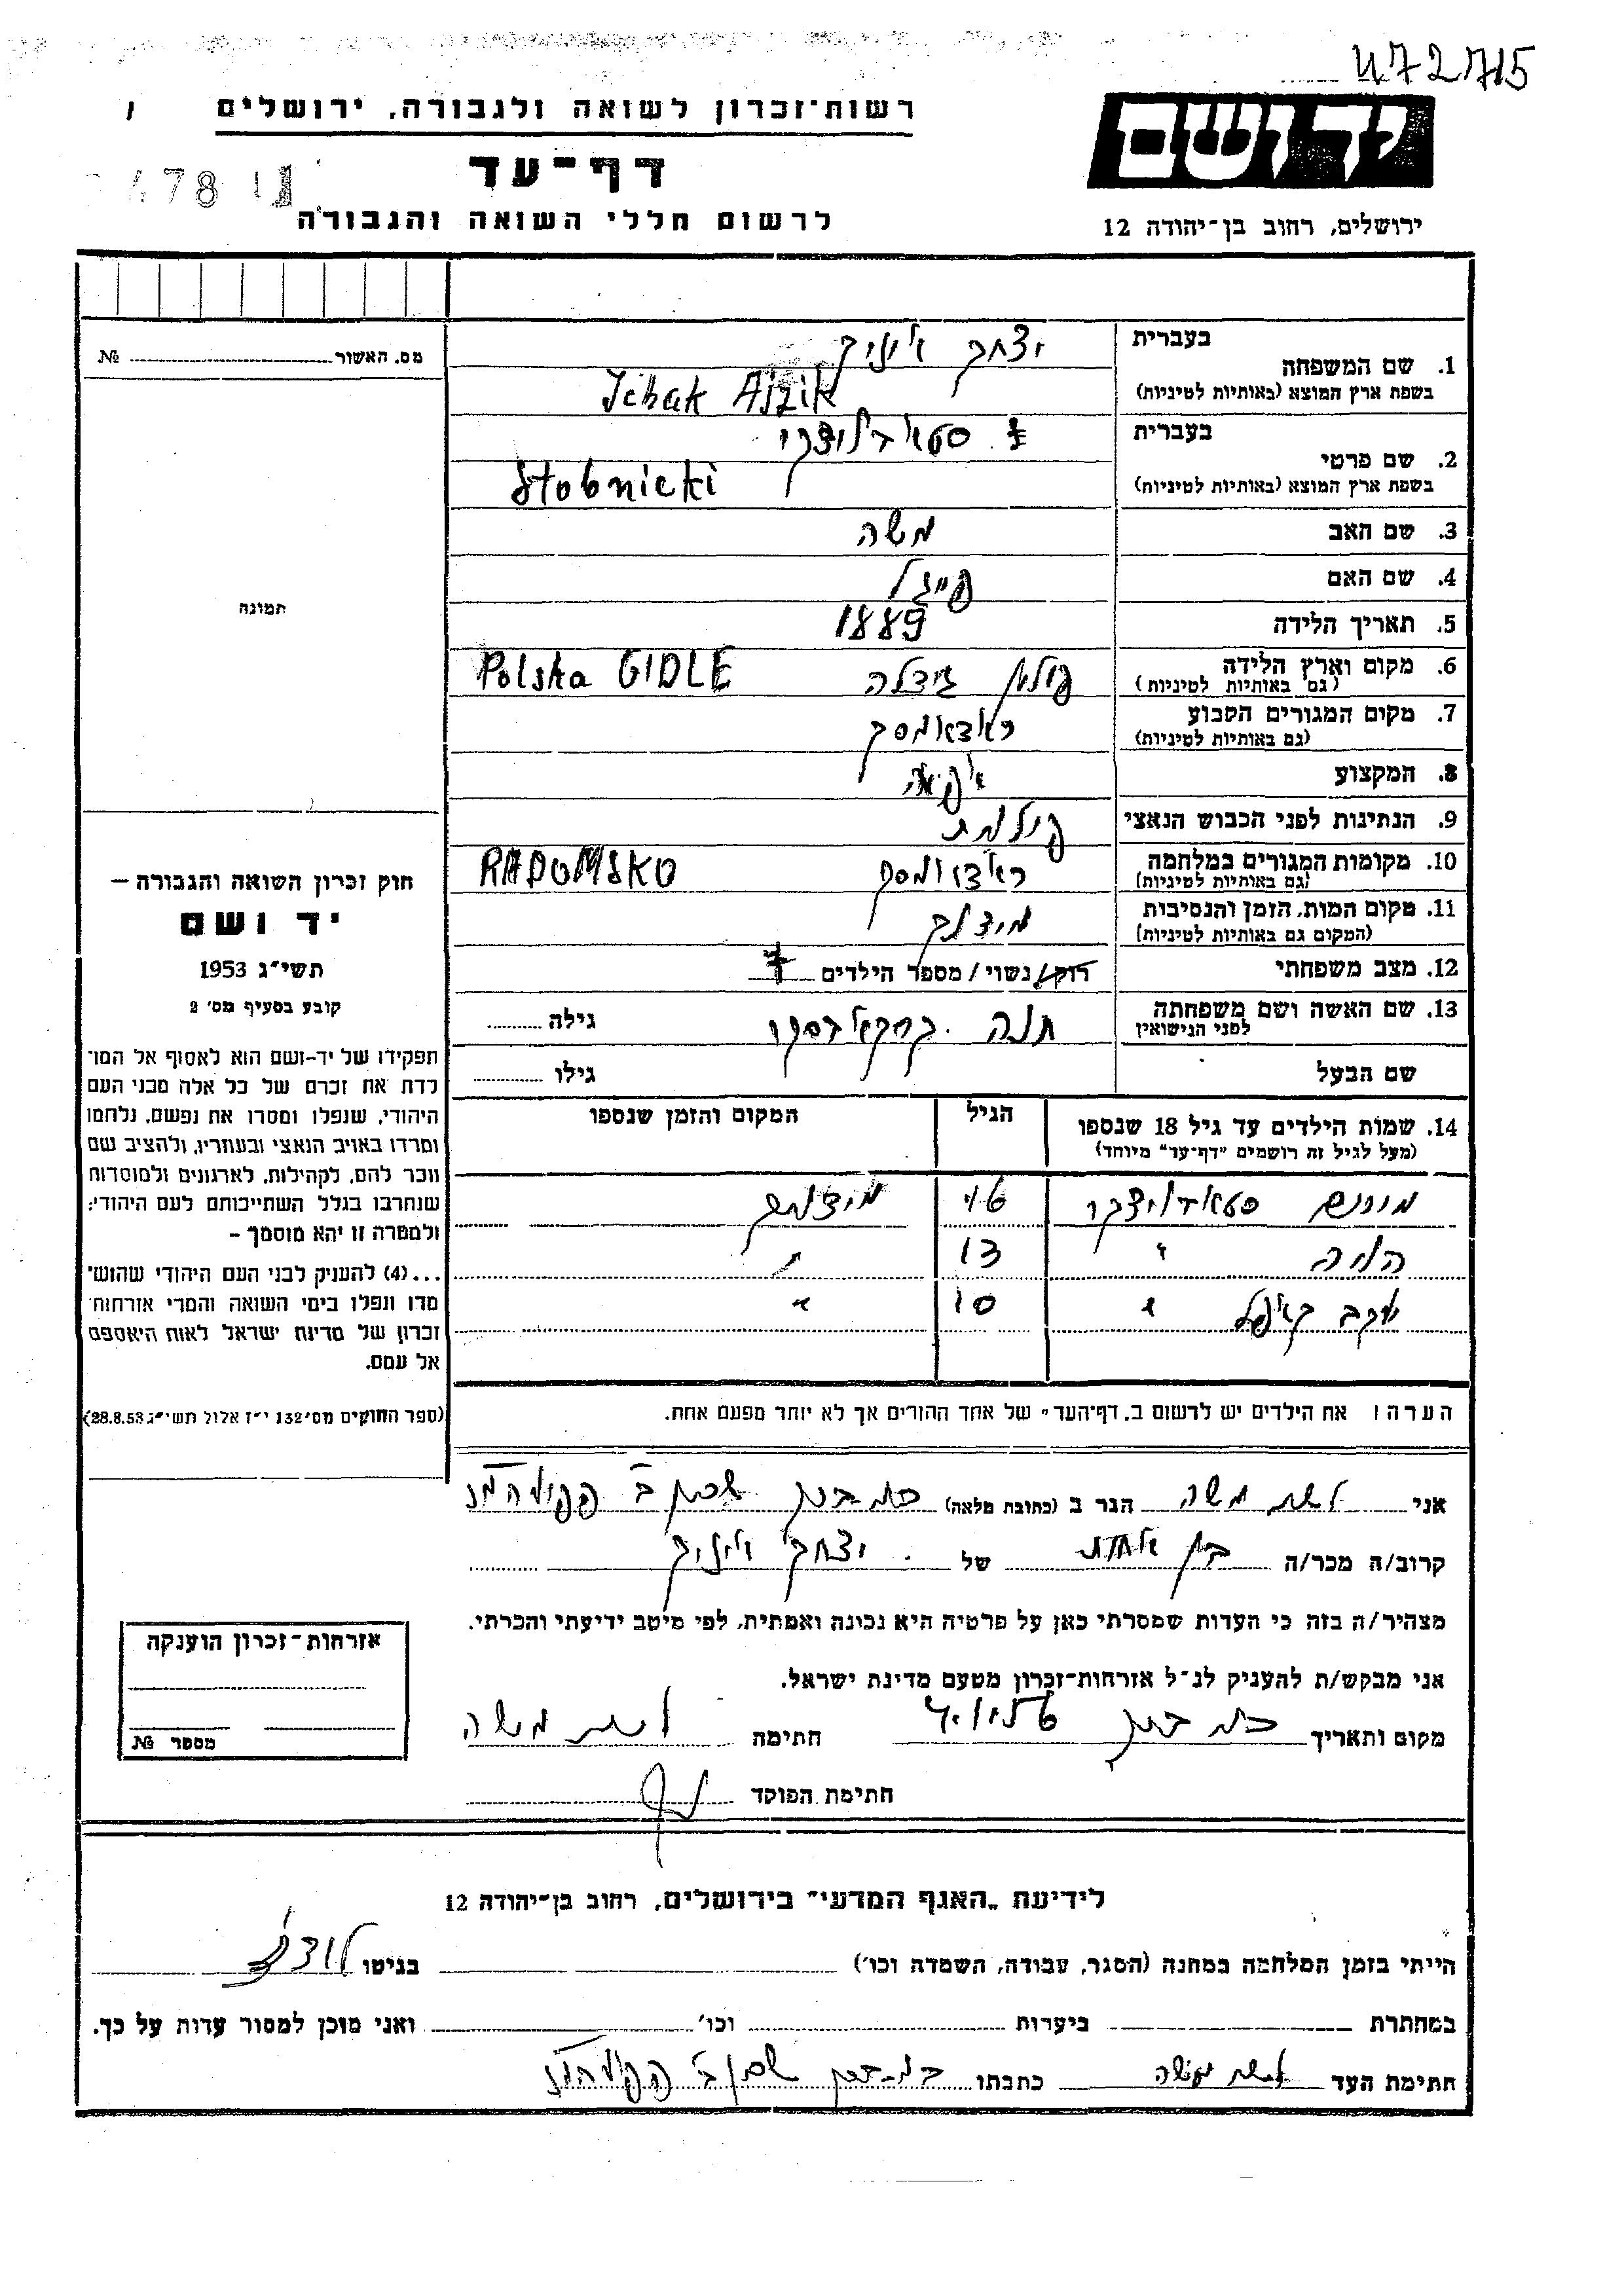 472715
רשות-זכרון לשואה ולגבורה, ירושלים
יד ושם
דף-עד
478
לרשום חללי השואה והגבורה
ירושלים, רחוב בן-יהודה 12
מס. האשור № 
בעברית
יצחק אייזיק
1. שם המשפחה
בשפת ארץ המוצא (באותיות לטיניות)
Jchak Ajzik
בעברית
2. שם פרטי
בשפת ארץ המוצא (באותיות לטיניות)
Stobnicki
3. שם האב משה
4. שם האם פייגל
5. תאריך הלידה 1889
6. מקום וארץ הלידה פולין גידלה Polska GIDLE
(גם באותיות לטיניות)
7. מקום המגורים הקבוע ראדאמסק
(גם באותיות לטיניות)
8. המקצוע
9. הנתינות לפני הכבוש הנאצי פולנית
10. מקומות המגורים במלחמה ראדומסק RADOMSKO
(גם באותיות לטיניות)
11. מקום המות, הזמן והנסיבות
(המקום גם באותיות לטיניות)
12. מצב משפחתי רוק/נשוי/מספר הילדים 7
13. שם האשה ושם משפחתה חנה גילה
לפני הנישואין
שם הבעל גילו
תמונה
חוק זכרון השואה והגבורה –
יד ושם
תשי"ג 1953
קובע בסעיף מס' 2
תפקידו של יד-ושם הוא לאסוף אל המו-
לדת את זכרם של כל אלה מבני העם
היהודי, שנפלו ומסרו את נפשם, נלחמו
ומרדו באויב הנאצי ובעוזריו, ולהציב שם
וזכר להם, לקהילות, לארגונים ולמוסדות
שנחרבו בגלל השתייכותם לעם היהודי;
ולמטרה זו יהא מוסמך –
...(4) להעניק לבני העם היהודי שהוש-
מדו ונפלו בימי השואה והמרי אזרחות
זכרון של מדינת ישראל לאות היאספם
אל עמם.
(ספר החוקים מס' 132 י"ז אלול תשי"ג 28.8.53)
14. שמות הילדים עד גיל 18 שנספו הגיל המקום והזמן שנספו
(מעל לגיל זה רושמים "דף-עד" מיוחד)
13 "
יעקב 10 "
הערה: את הילדים יש לרשום ב"דף-העד" של אחד ההורים אך לא יותר מפעם אחת.
אני משה הגר ב (כתובת מלאה)
קרוב/ה מכר/ה בן אחות של יצחק אייזיק
מצהיר/ה בזה כי העדות שמסרתי כאן על פרטיה היא נכונה ואמתית, לפי מיטב ידיעתי והכרתי.
אני מבקש/ת להעניק לנ"ל אזרחות-זכרון מטעם מדינת ישראל.
מקום ותאריך חתימה משה
חתימת הפוקד
אזרחות-זכרון הוענקה
מספר №
לידיעת "האגף המדעי" בירושלים, רחוב בן-יהודה 12
הייתי בזמן המלחמה במחנה (הסגר, עבודה, השמדה וכו') בגיטו לודז'
במחתרת ביערות וכו' ואני מוכן למסור עדות על כך.
חתימת העד משה כתבתו